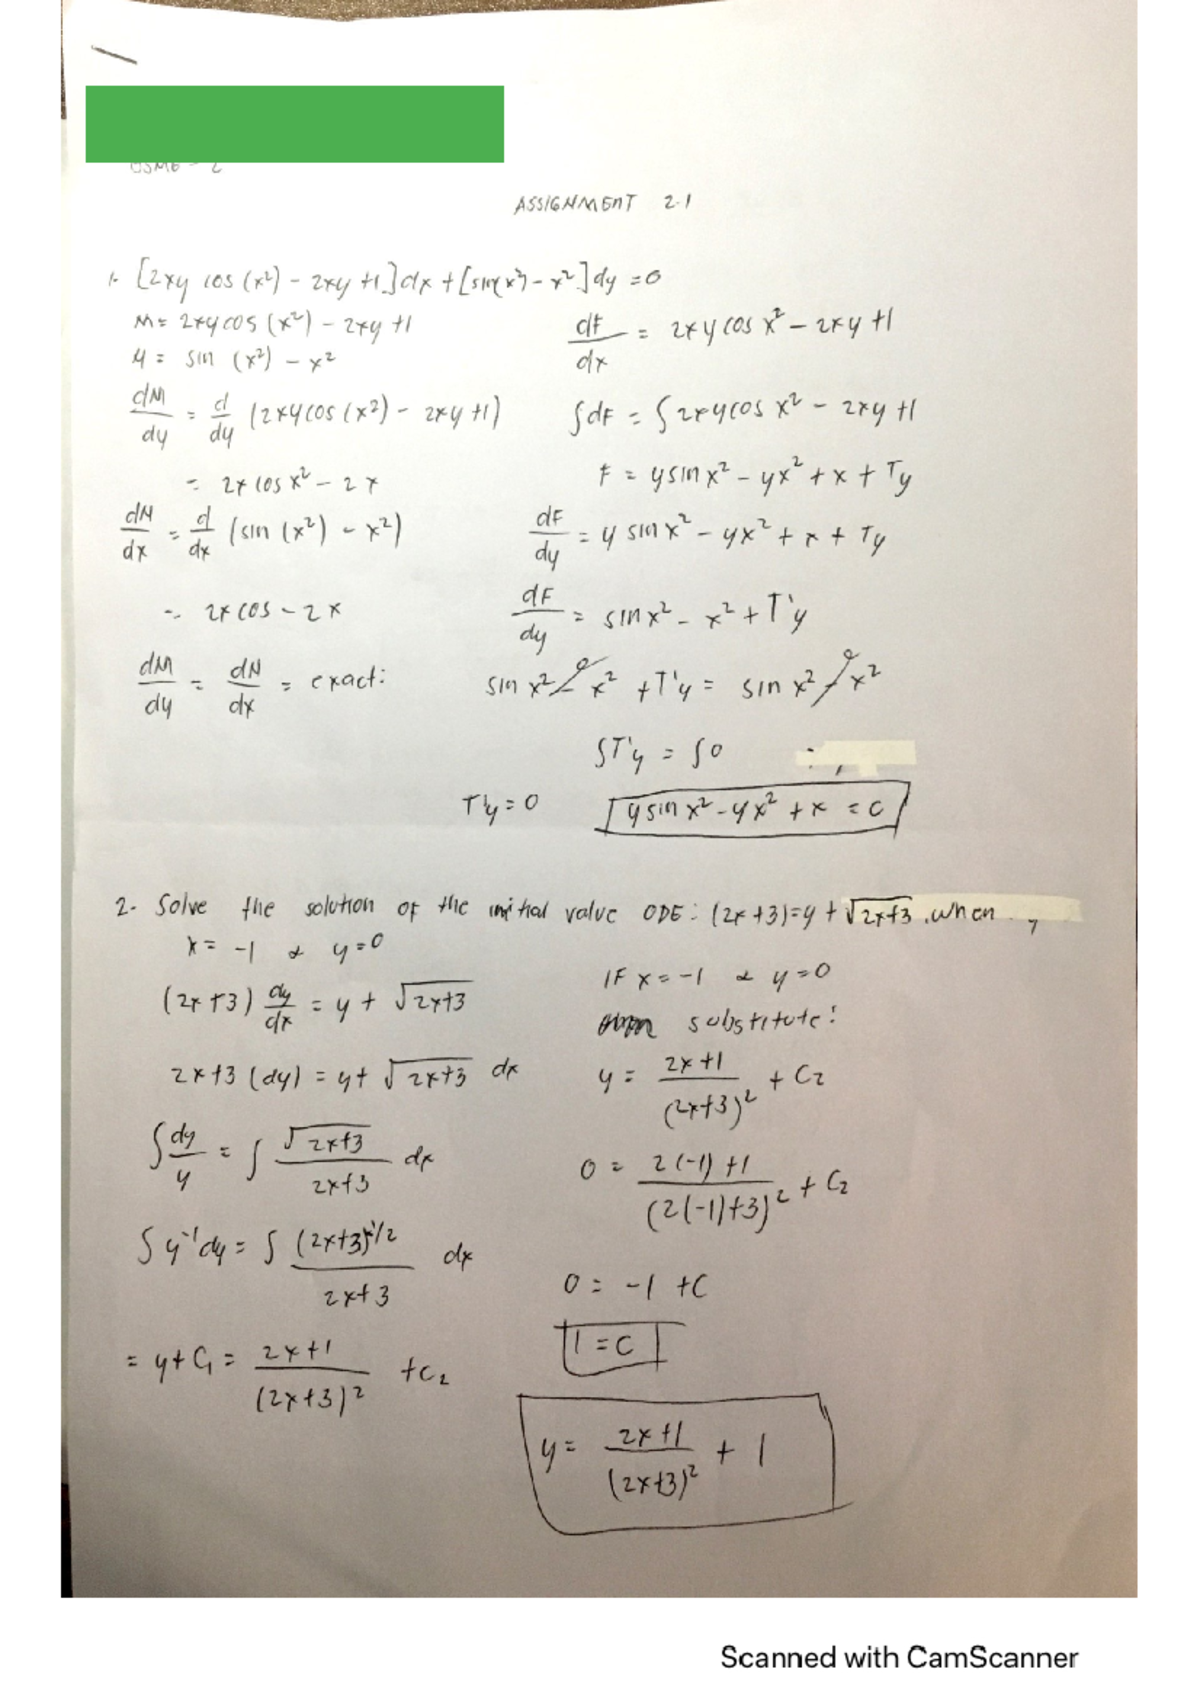 ASSIGNMENT 2.1
1. [2xy cos (x²) - 2xy +1] dx + [sin(x²) - x²] dy = 0
M = 2xy cos (x²) - 2xy +1
N = sin (x²) - x²
dM/dy = d/dy (2xy cos (x²) - 2xy +1)
= 2x cos x² - 2x
dN/dx = d/dx (sin (x²) - x²)
= 2x cos - 2x
dM/dy = dN/dx = exact:
dF/dx = 2xy cos x² - 2xy +1
∫dF = ∫2xy cos x² - 2xy +1
F = y sin x² - yx² + x + Ty
dF/dy = y sin x² - yx² + x + Ty
dF/dy = sin x² - x² + T'y
sin x² - x² + T'y = sin x² - x²
∫T'y = ∫0
T'y = 0
y sin x² - yx² + x = c
2. Solve the solution of the initial value ODE: (2x+3)=y + √2x+3 .when
x = -1 & y=0
(2x+3) dy/dx = y + √2x+3
2x+3 (dy) = y+ √2x+3 dx
∫ dy/y = ∫ √2x+3 / 2x+3 dx
∫ y⁻¹dy = ∫ (2x+3)^1/2 / 2x+3 dx
= y + C₁ = 2x+1 / (2x+3)² + C₂
IF x = -1 & y=0
substitute:
y = 2x+1 / (2x+3)² + C₂
0 = 2(-1)+1 / (2(-1)+3)² + C₂
0 = -1 + C
1 = C
y = 2x+1 / (2x+3)² + 1
Scanned with CamScanner